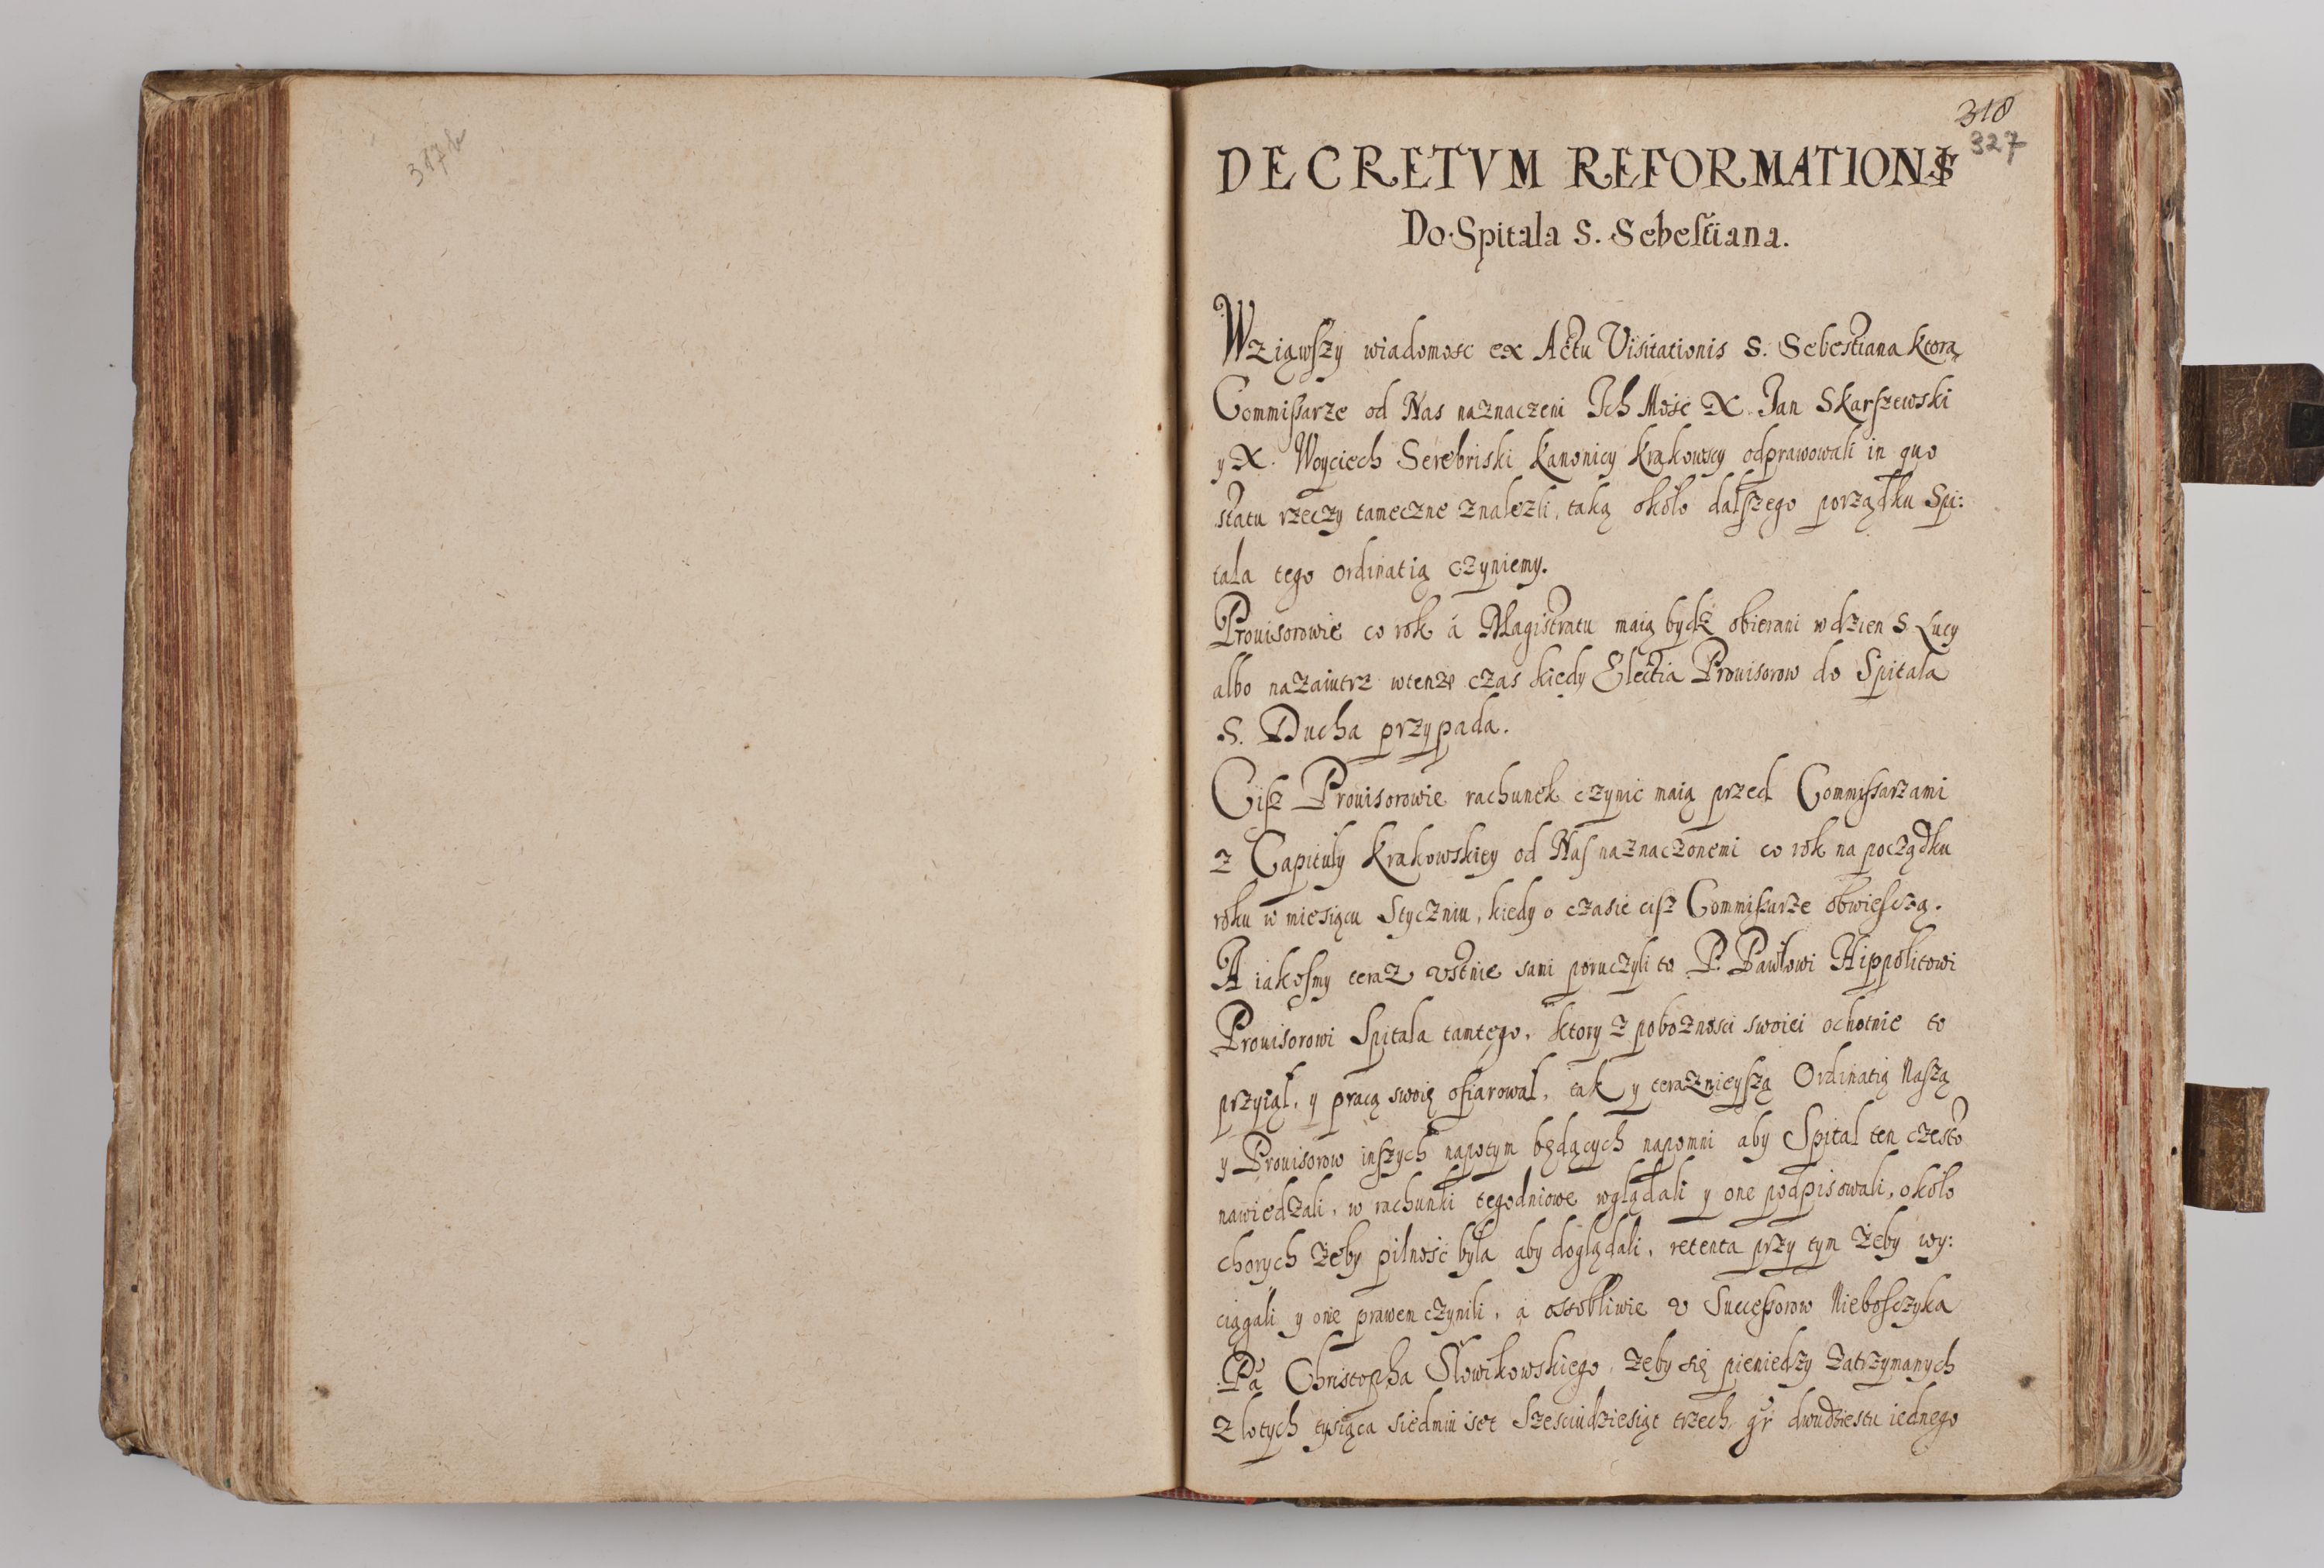 318
327
DECRETVM REFORMATIONIS
Do Spitala S. Sebestiana.
Wziąwszy wiadomosc ex Actu Visitationis S. Sebestiana ktorą
Commissarze od Nas naznaczeni Ich Mość X. Jan Skarszewski
y X. Woyciech Serebriski Kanonicy Krakowscy odprawowali in quo
statu rzeczy tameczne znalezli, taką około dalszego porządku Spi:
tala tego ordinatią czyniemy.
Prouisorowie co rok á Magistratu maią bydź obierani w dzien S. Lucy
albo nazaiutrz wtenże czas kiedy Electia Prouisorow do Spitala
S. Ducha przypada.
Cisz Prouisorowie rachunek czynic maią przed Commissarzami
z Capituły Krakowskiey od Nas naznaczonemi co rok na początku
roku w miesiącu Styczniu, kiedy o czasie cisz Commissarze obwieszczą.
A iakosmy teraz vstnie sami poruczyli to P. Pawłowi Hippolitowi
Prouisorowi Spitala tamtego, ktory z poboznosci swoiei ochotnie to
przyiął, y pracą swoię ofiarował, tak y terazniejszą Ordinatią Naszą
y Prouisorow inszych napotym będących napomni aby Spital ten czesto
nawiedzali, w rachunki tegodniowe wglądali y one podpisowali, około
chorych żeby pilność była aby doglądali, retenta przy tym żeby wy:
ciągali y onie prawem czynili, a ossobliwie v Successorow Nieboszczyka
Pa Christopha Słowikowskiego, żeby się pieniedzy zatrzymanych
złotych tysiąca siedmiu set szesciudziesiąt trzech gr dwudziestu iednego